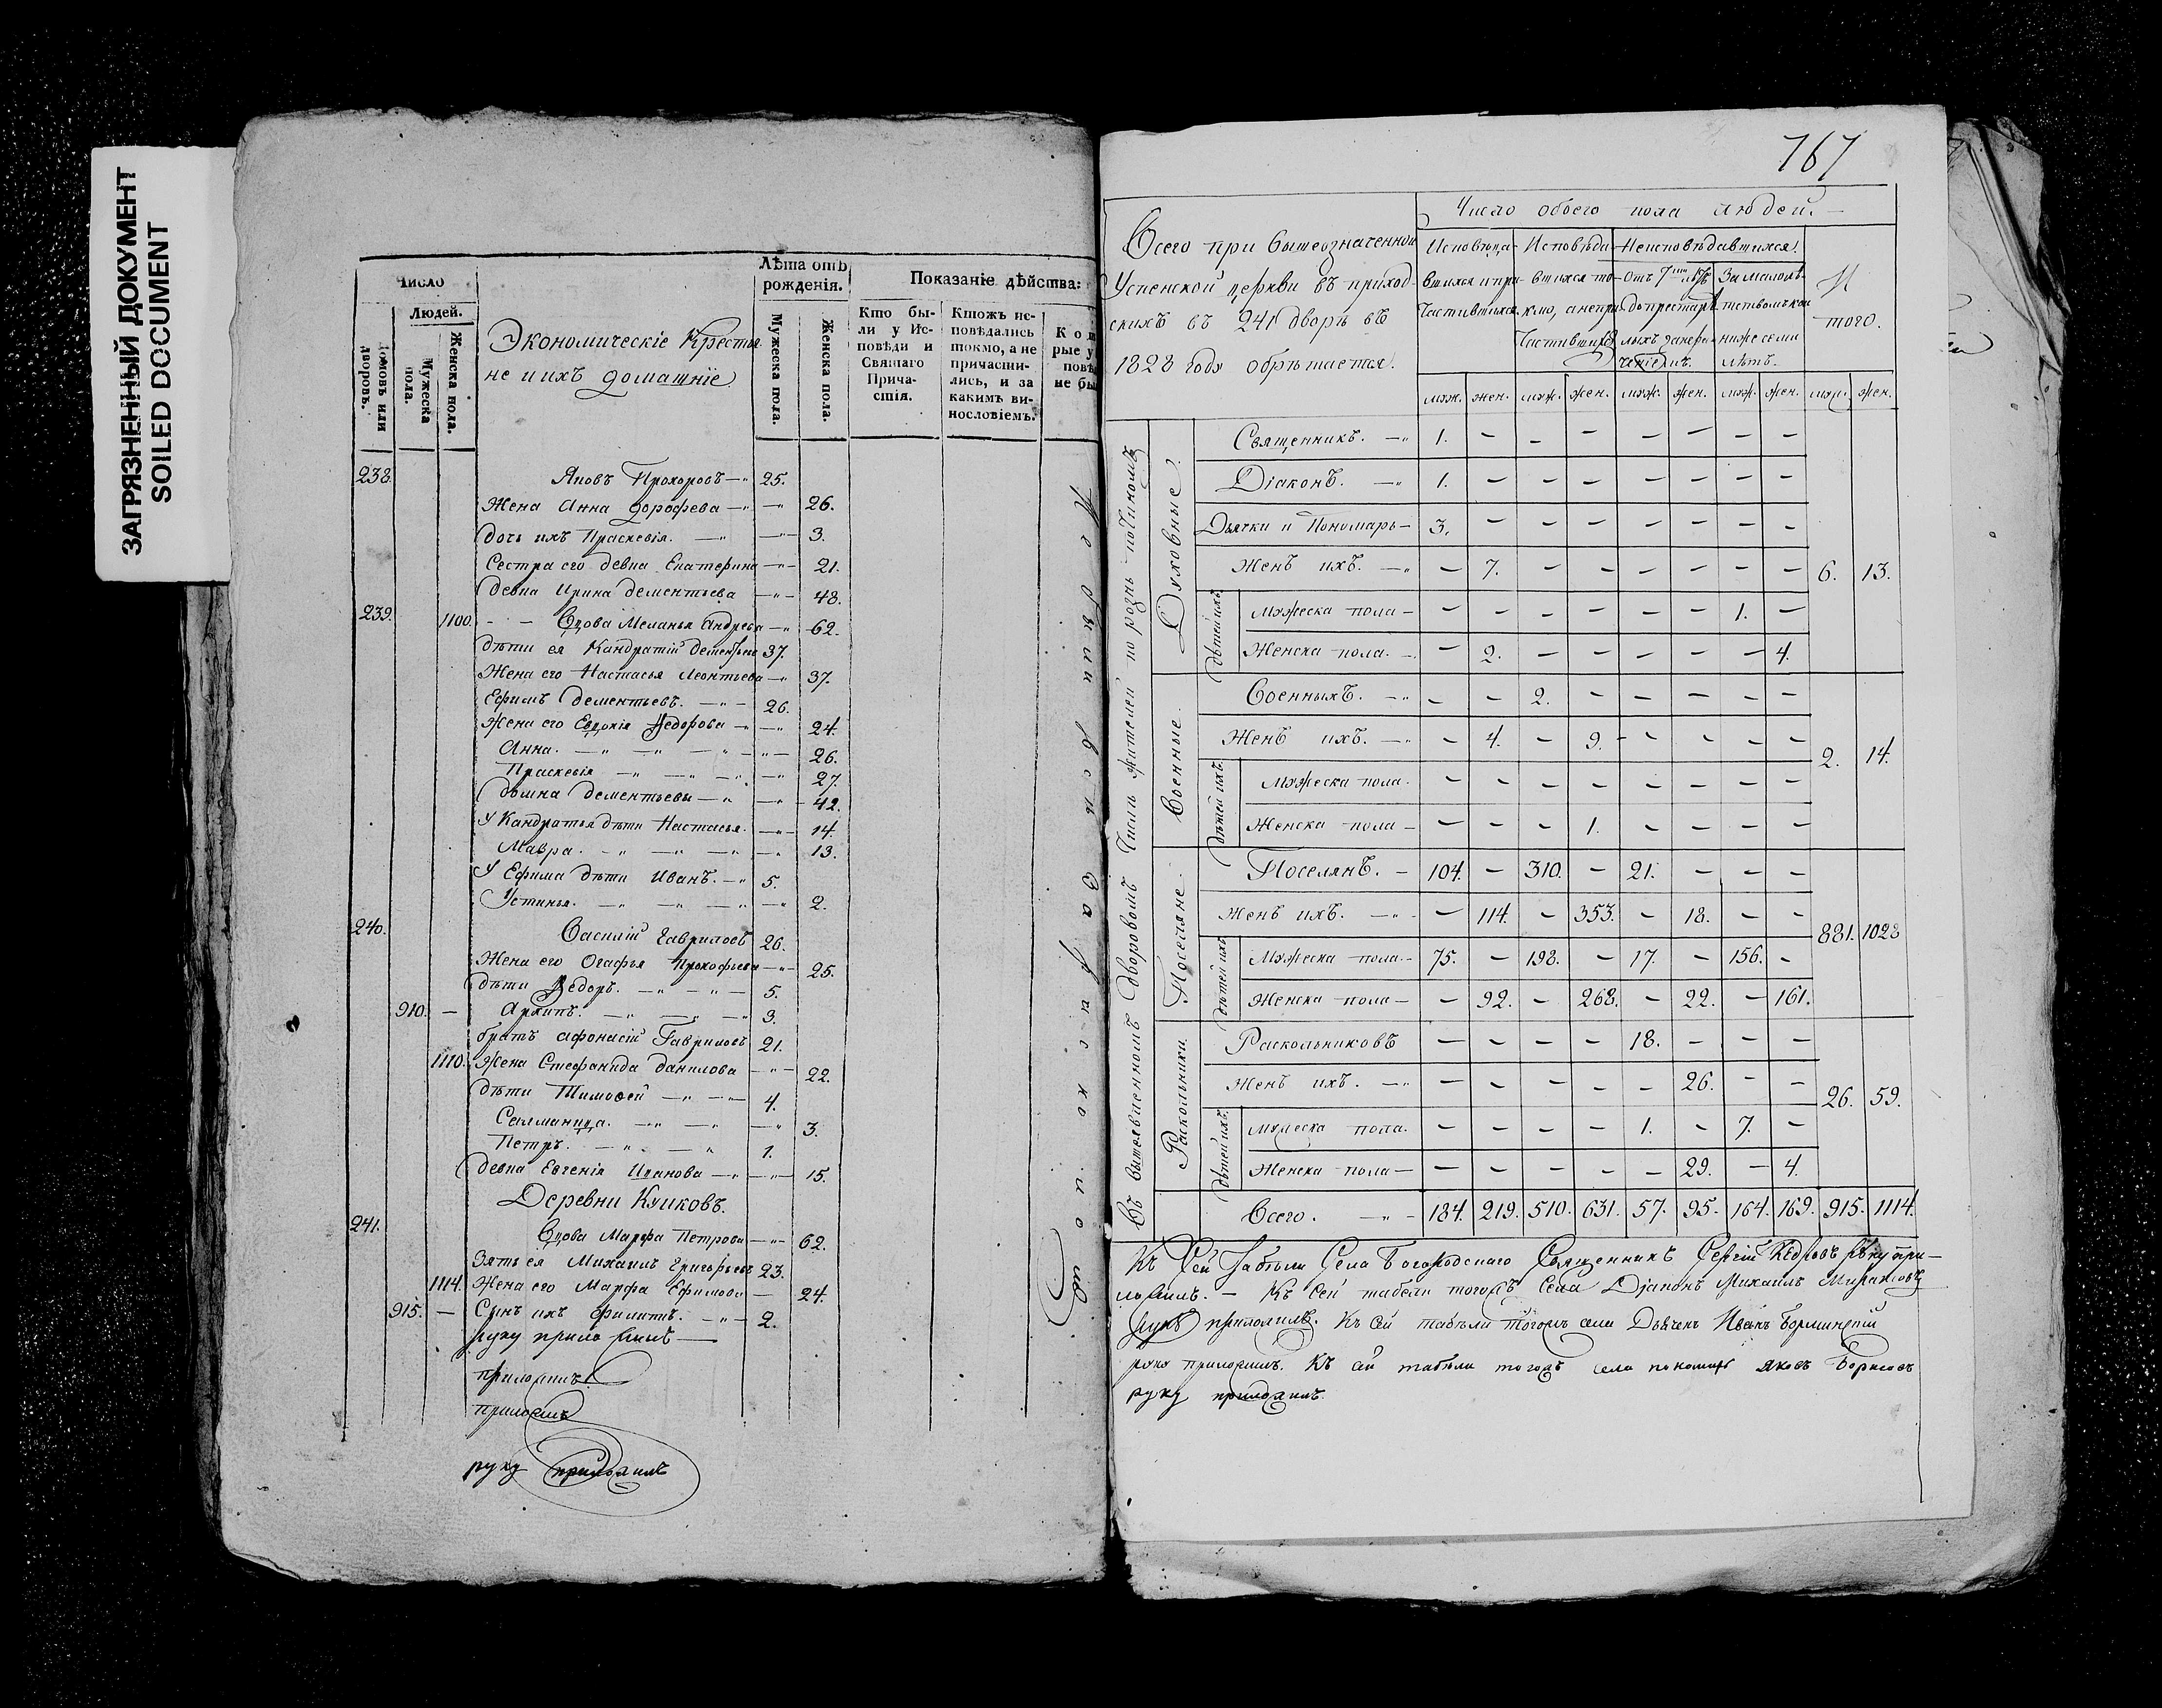 ЗАГРЯЗНЕННЫЙ ДОКУМЕНТ
SOILED DOCUMENT
Число
Людей.
домовъ или дворовъ.
Мужеска пола.
Женска пола.
Экономическіе Крестья
не и ихъ домашніе
Лѣта отъ рожденія.
Мужеска пола.
Женска пола.
Показаніе дѣйства:
Кто бы-
ли у Ис-
повѣди и
Святаго
Прича-
стія.
Ктожъ ис-
повѣдались
токмо, а не
причасти-
лись, и за
какимъ ви-
нословіемъ.
238. Яковъ Прохоровъ —„ 25.
Жена Анна дорофеева —„ — 26.
дочь ихъ Праскевія. — — 3.
Сестра его девка Екатерина —„— 21.
девка Ирина дементьева —„— 48.
239. 1100. - - Вдова Меланья Андрева —„ 62.
дѣти ея Кандратій дементьев 37.
Жена его Настасья Леонтьева —„ 37.
Ефимъ дементьевъ. —„— 26.
Жена его Евдокія Ѳедорова —„— 24.
Анна. —„ —„ —„ 26.
Праскевія —„ —„ —„ 27.
домна дементьевы —„ —„ 42.
У Кандратья дѣти Настасья. —„— 14.
Мавра. —„ —„ —„ 13.
У Ефима дѣти Иванъ. —„ 5.
Устинья. —„ —„ —„ 2.
240. Василій Гавриловъ 26.
Жена его Огафья Прокофьева —„— 25.
дѣти Ѳедоръ. —„ —„— 5.
910. — Архипъ. —„ —„ —„ 3.
братъ афонасій Гавриловъ 21.
1110. Жена Стефанида данилова —„— 22.
дѣти Тимофей —„ —„— 4.
Саломанида. —„ —„ —„ 3.
Петръ. —„ —„ 1.
девка Евгенія Иванова —„ —„— 15.
Деревни Куликовъ.
241. Вдова Марфа Петрова —„— 62.
Зять ея Михаилъ Григорьевъ 23.
1114. Жена его Марфа Ефимова — 24.
915. — Сынъ ихъ филипъ. —„— 2.
руку приложилъ
приложилъ
приложилъ
руку приложилъ
767
Всего при вышеозначенной
Успенской церкви въ приход-
скихъ въ 241 дворѣ въ
1828 годѣ обрѣтается.
Число обоего пола людей. —
Исповѣда-
вшихся и при-
частившихся.
Исповѣда-
вшихся то-
кмо, а непри-
частивших
Неисповѣдавшихся.
Отъ 7ми лѣтъ
до престарѣ
лыхъ
За малолѣ-
тствомъ
ниже семи
лѣтъ.
И
того.
муж. жен. муж. жен. муж. жен. муж. жен. муж. жен.
Въ вышеявленномъ дворовомъ Числѣ жителей по рознь по Чиномъ
Духовные.
Священникъ. —„ 1. — — — — — — —
Діаконъ. —„ 1. — — — — — — —
Дьячки и Пономарь — 3. — — — — — — —
Женъ ихъ. —„ — 7. — — — — — — 6. 13.
дѣтей ихъ
Мужеска пола — — — — — — — 1. —
Женска пола. — — 2. — — — — — 4.
Военные.
Военныхъ. —„ — — 2. — — — — —
Женъ ихъ. —„ — 4. — 9. — — — — 2. 14.
дѣтей ихъ.
Мужеска пола. — — — — — — — —
Женска пола — — — — 1. — — — —
Поселяне.
Поселянъ. — 104. — 310. — 21. — — —
Женъ ихъ. —„ — 114. — 353. — 18. — — 881. 1028
дѣтей ихъ
Мужеска пола. — 75. — 198. — 17. — 156. —
Женска пола — — 92. — 268. — 22. — 161.
Раскольники.
Раскольниковъ — — — — 18. — — —
Женъ ихъ. —„ — — — — — 26. — — 26. 59.
дѣтей ихъ.
Мужеска пола. — — — — 1. — 7. —
Женска пола — — — — — — 29. — 4.
Всего. —„ 184. 219. 510. 631. 57. 95. 164. 169. 915. 1114.
Къ Сей Табѣли Села Богородскаго Священникъ Сергій Кедровъ руку при-
ложилъ. — Къ сей табели тогожъ Села Діаконъ Михаилъ
руку приложилъ. Къ сей табѣли тогожъ села Дьячекъ Иванъ
руку приложилъ. Къ сей табѣли тогожъ села пономарь Яковъ Борисовъ
руку приложилъ.